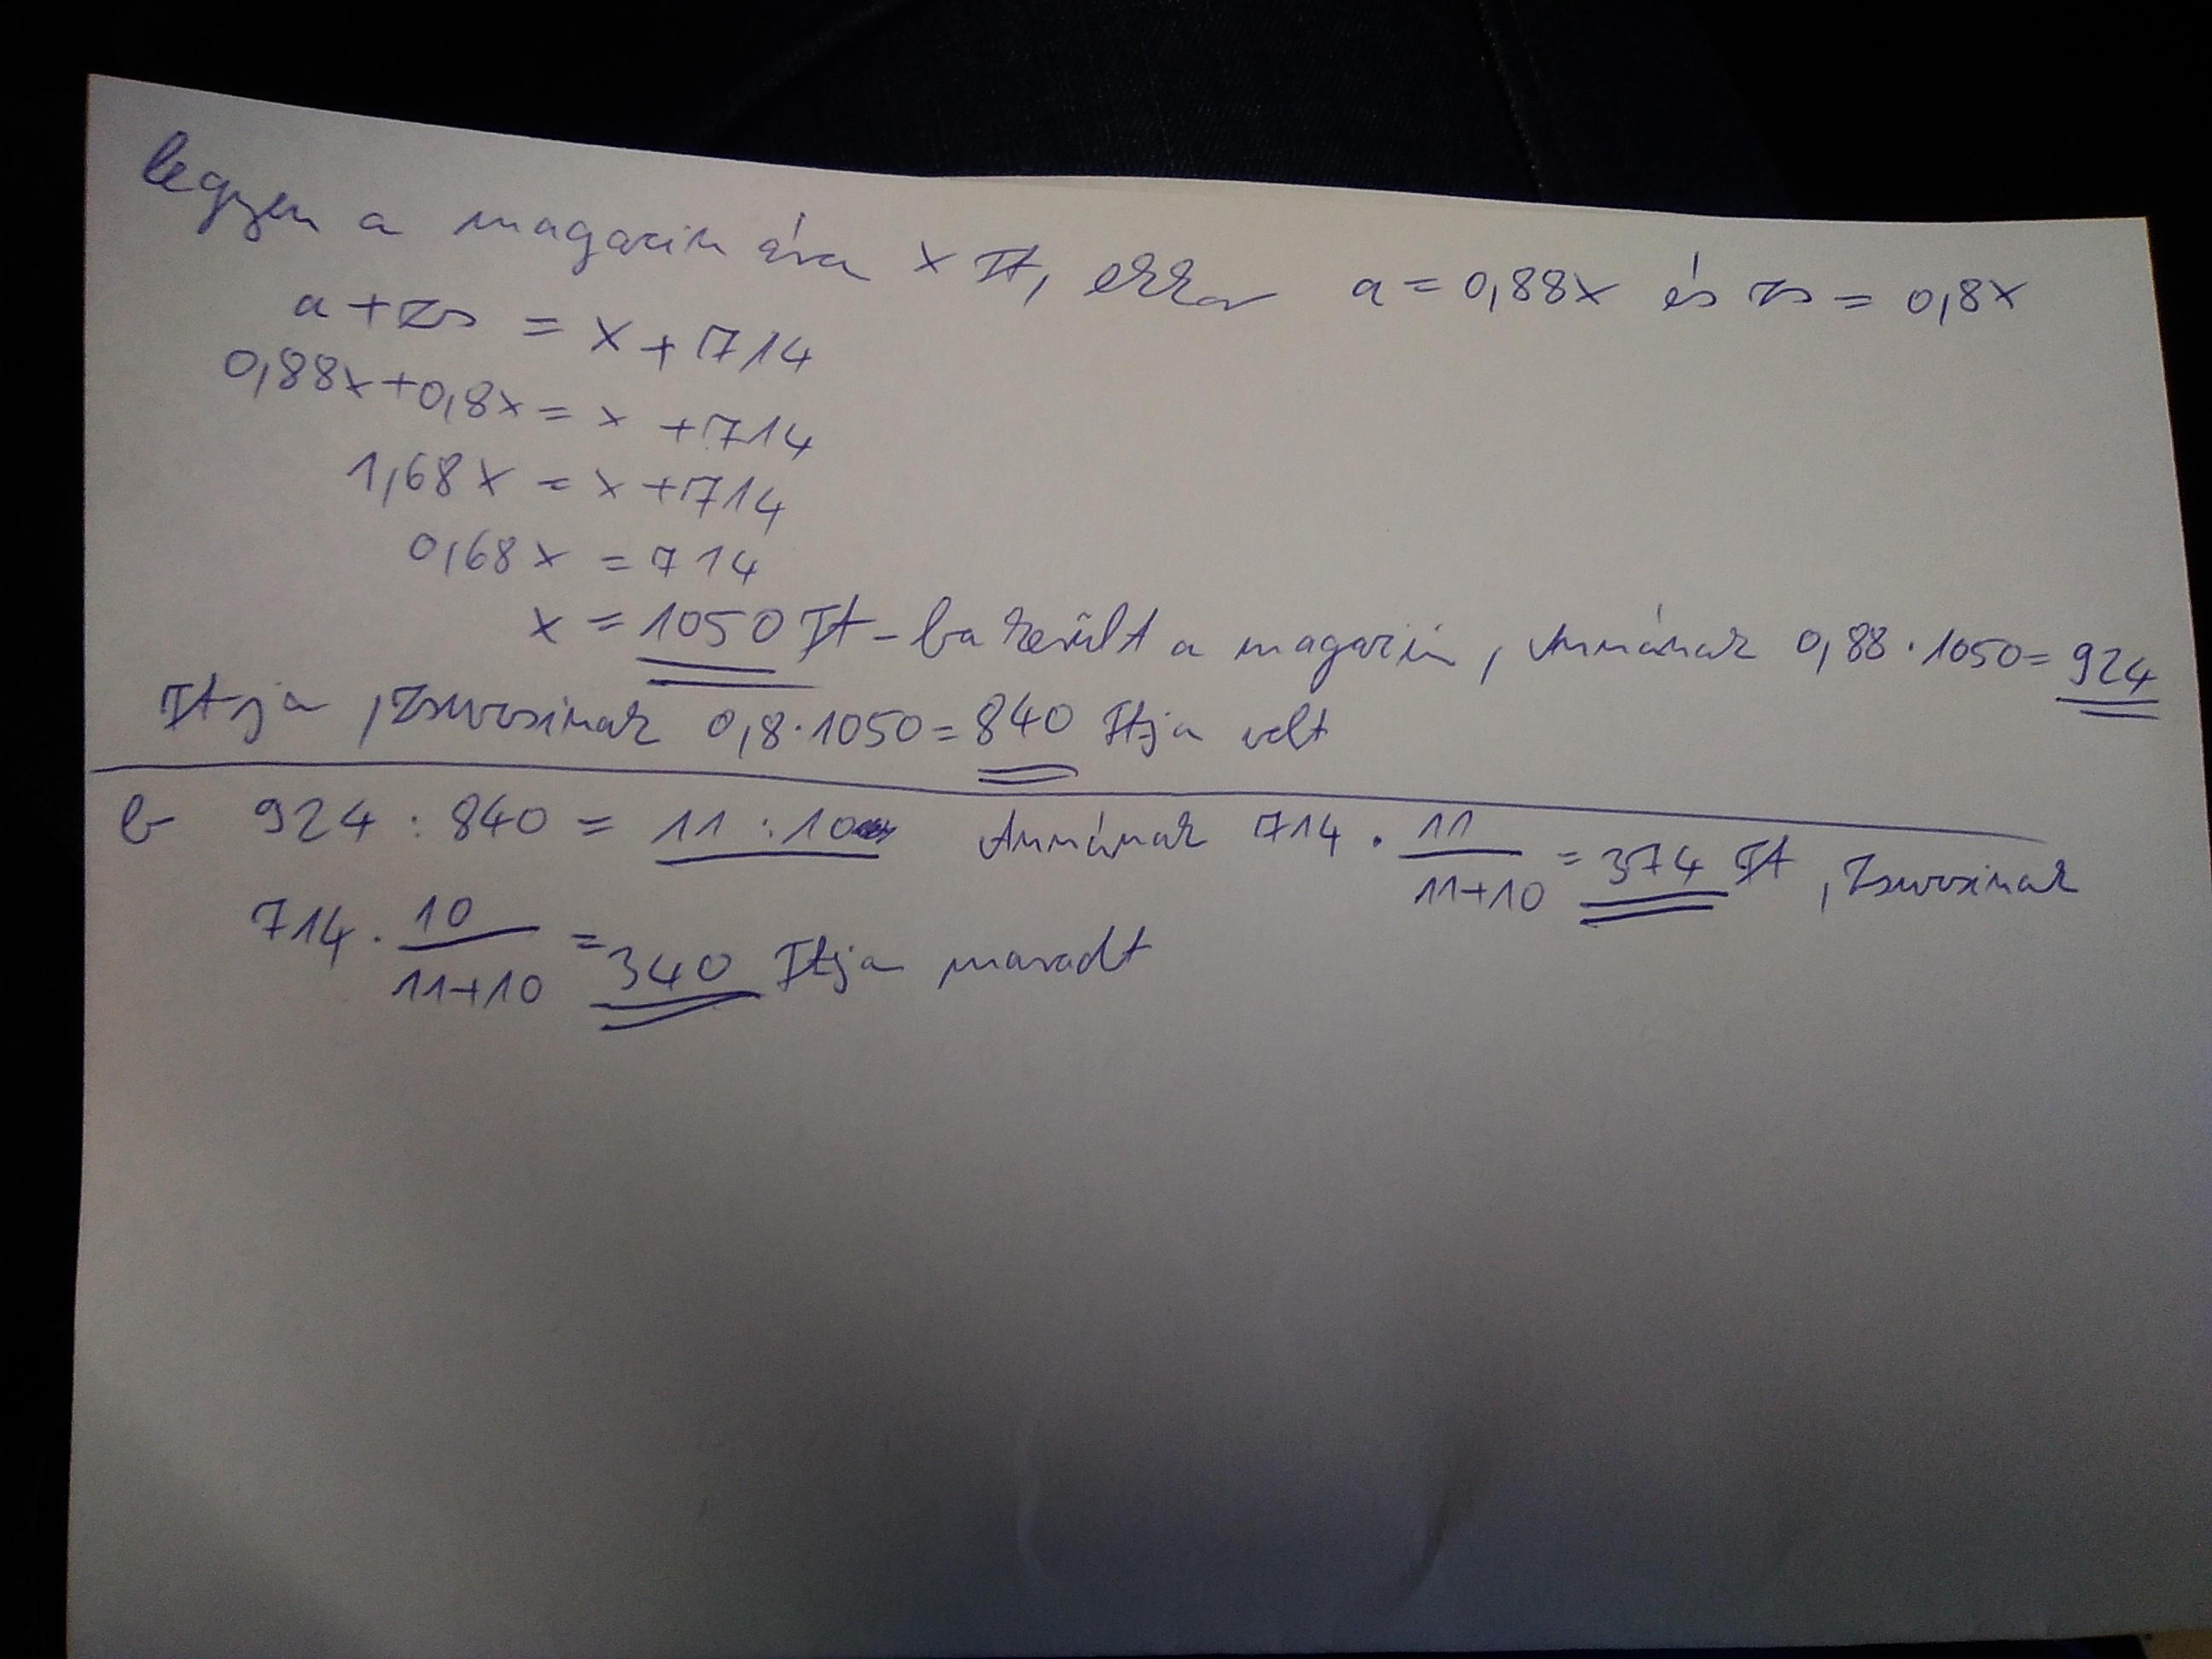 legyen a magazin ára x Ft, ekkor a = 0,88x és zs = 0,8x
a + zs = x + 714
0,88x + 0,8x = x + 714
1,68x = x + 714
0,68x = 714
x = 1050 Ft-ba került a magazin, Annának 0,88 · 1050 = 924
Ft-ja, Zsuzsinak 0,8 · 1050 = 840 Ftja volt
b 924 : 840 = 11 : 10 Annának 714 · 11/(11+10) = 374 Ft, Zsuzsinak
714 · 10/(11+10) = 340 Ftja maradt